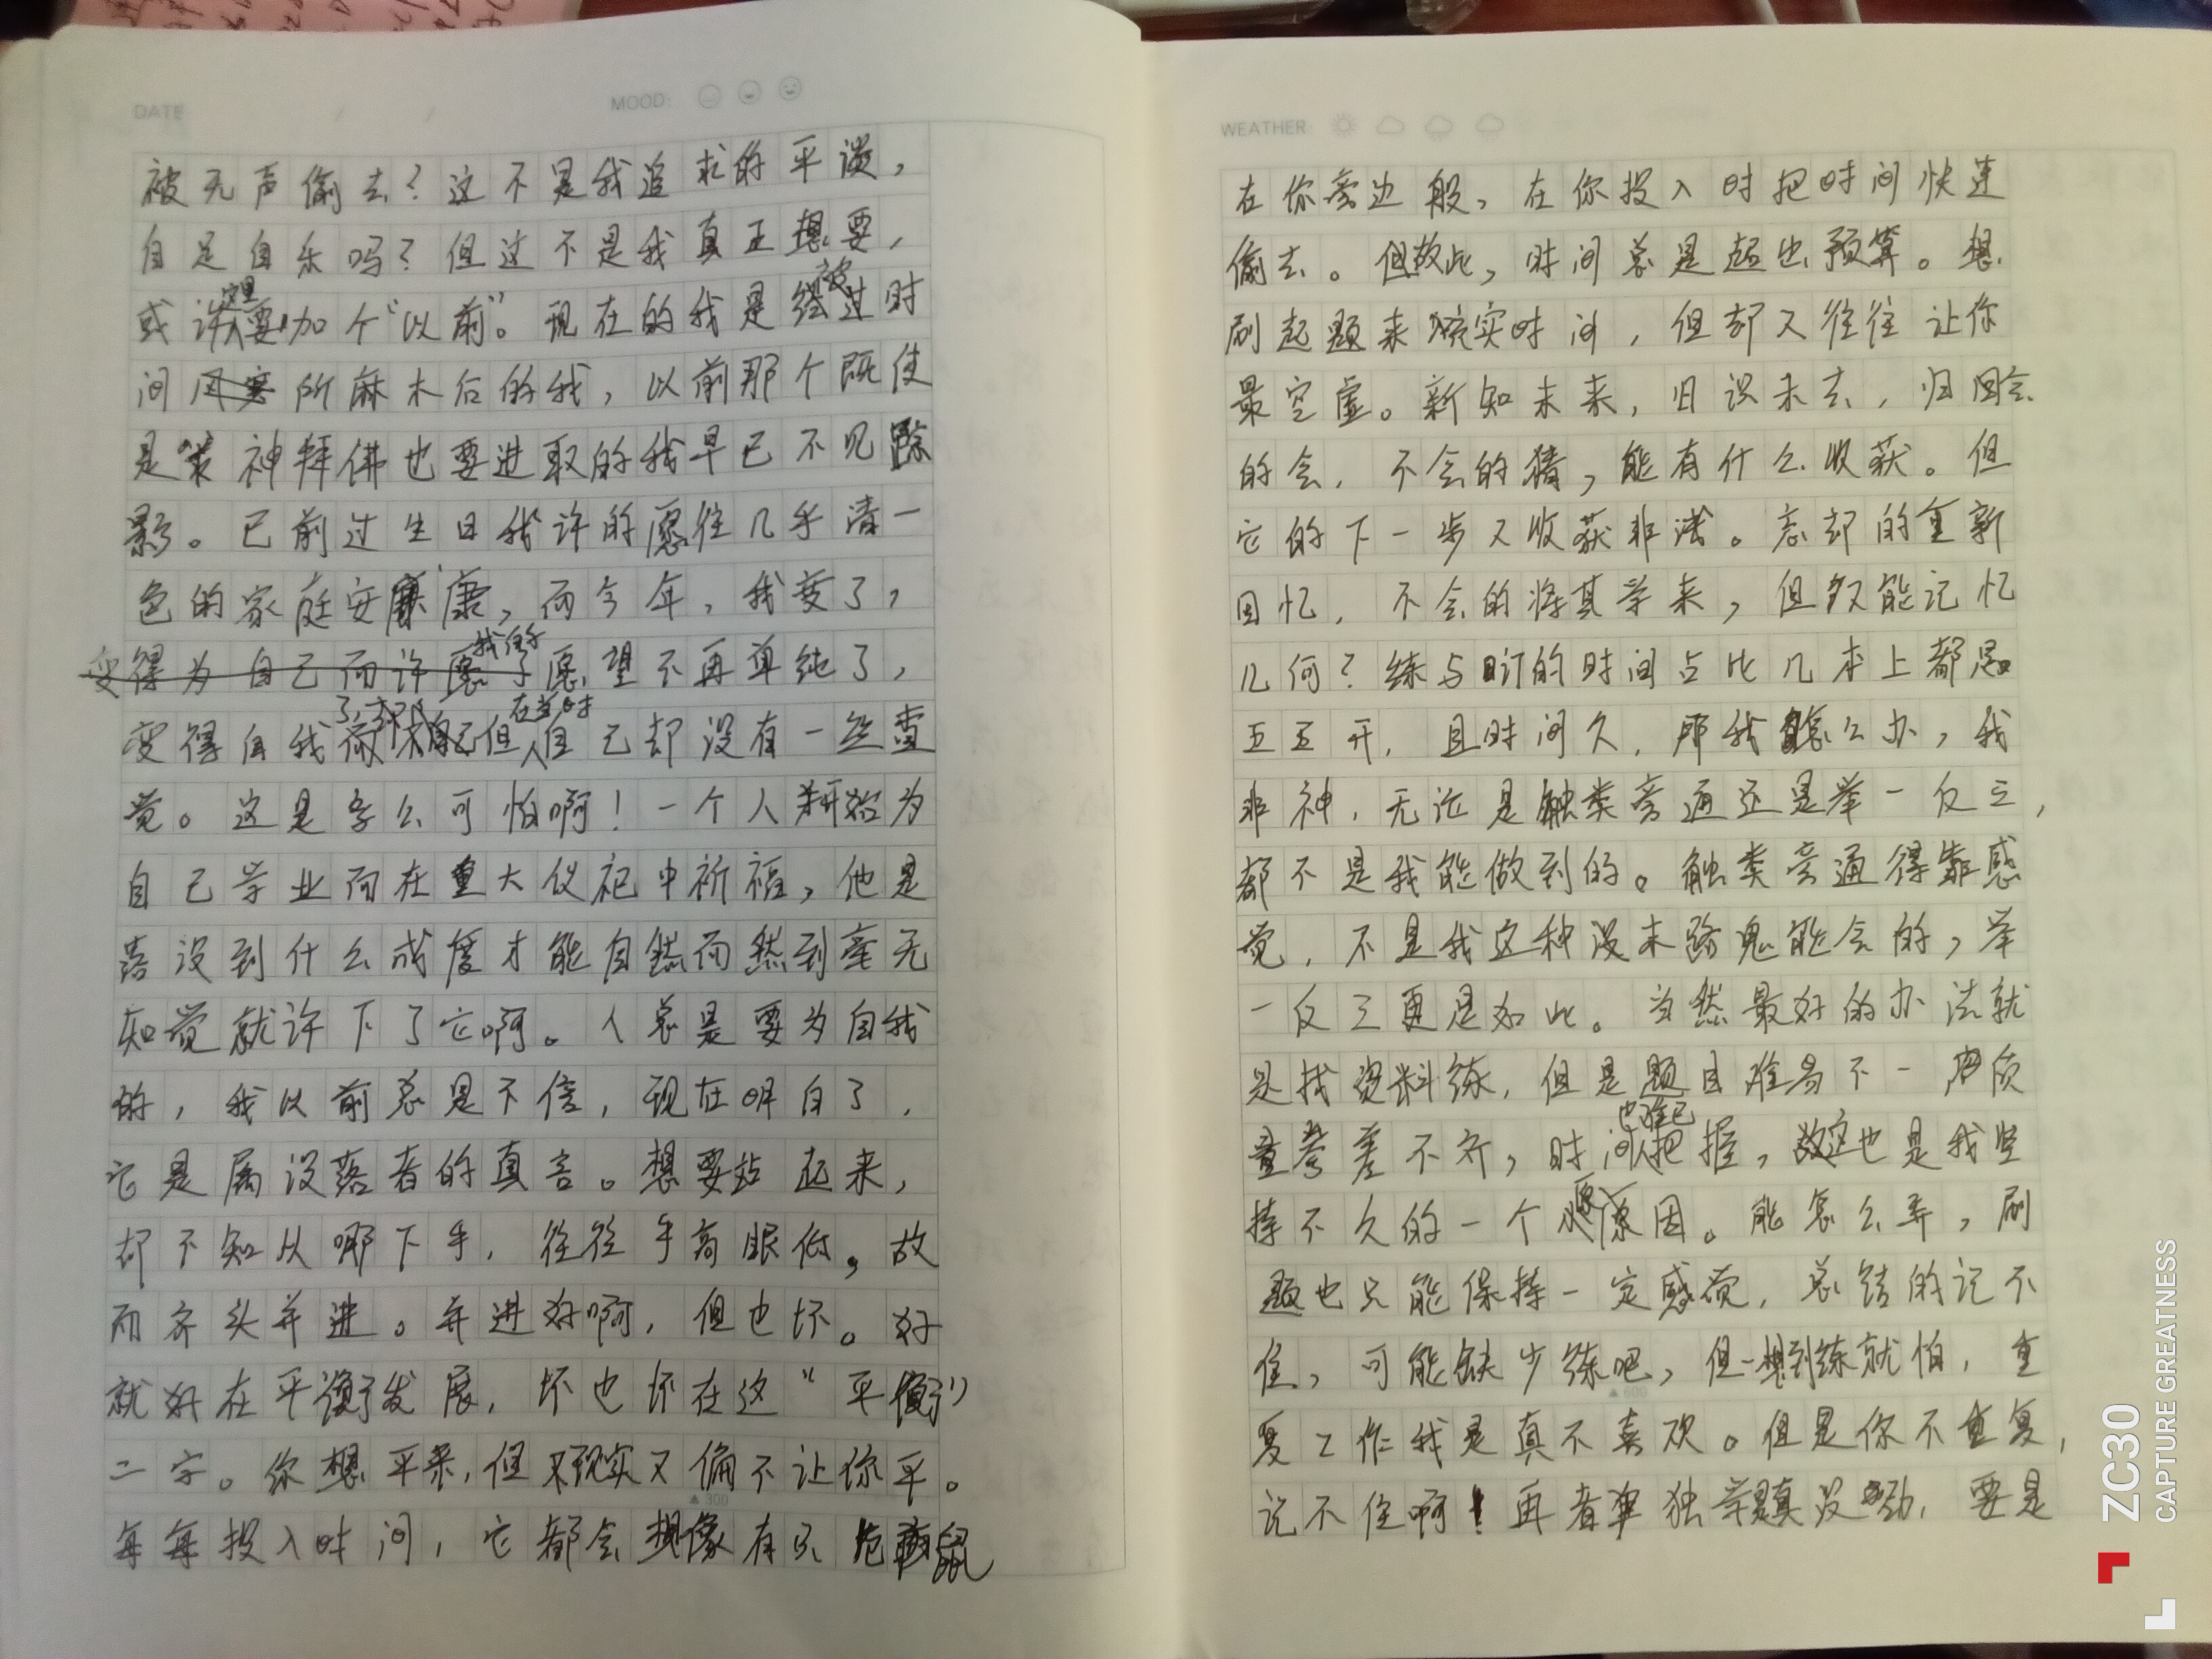 DATE / / MOOD:
被无声偷去？这不是我追求的平淡，
自足自乐吗？但过不是我真正想要，
或许这里要加个“以前”。现在的我是被过时
间所麻木后的我，以前那个既使
是求神拜佛也要进取的我早已不见踪
影。已前过生日我许的愿往几乎清一
色的家庭安康，而今年，我变了，
变得为自己而许愿了我的愿望不再单纯了，
变得自我了，但在当时自己却没有一丝查
觉。这是多么可怕啊！一个人开始为
自己学业而在重大仪祀中祈福，他是
落没到什么成度才能自然而然到毫无
知觉就许下了它啊。人总是要为自我
的，我以前总是不信，现在明白了，
它是属没落者的真言。想要站起来，
却不知从哪下手，往往手高眼低，故
而齐头并进。并进好啊，但也坏。好
就好在平衡发展，坏也坏在这“平衡”
二字。你想平来，但现实又偏不让你平。
每每投入时间，它都会想像有只鼠
WEATHER:
在你旁边般，在你投入时把时间快速
偷去。但故此，时间总是超出预算。想
刷起题来充实时间，但却又往往让你
最空虚。新知未来，旧识未去，归回会
的会，不会的猜，能有什么收获。但
它的下一步又收获非浅。忘却的重新
回忆，不会的将其学来，但又能记忆
几何？练与订的时间占比几本上都是
五五开，且时间久，那我怎么办，我
非神，无论是触类旁通还是举一反三，
都不是我能做到的。触类旁通得靠感
觉，不是我这种没末路鬼能会的，举
一反三更是如此。当然最好的办法就
是找资料练，但是题目难易不一，质
量参差不齐，时间也难已把握，这也是我坚
持不久的一个原因。能怎么弄，刷
题也只能保持一定感觉，总结的记不
住，可能缺少练吧，但一想到练就怕，重
复工作我是真不喜欢。但是你不重复，
记不住啊！再者单独学真没劲，要是
▲300
▲600
ZC30
CAPTURE GREATNESS